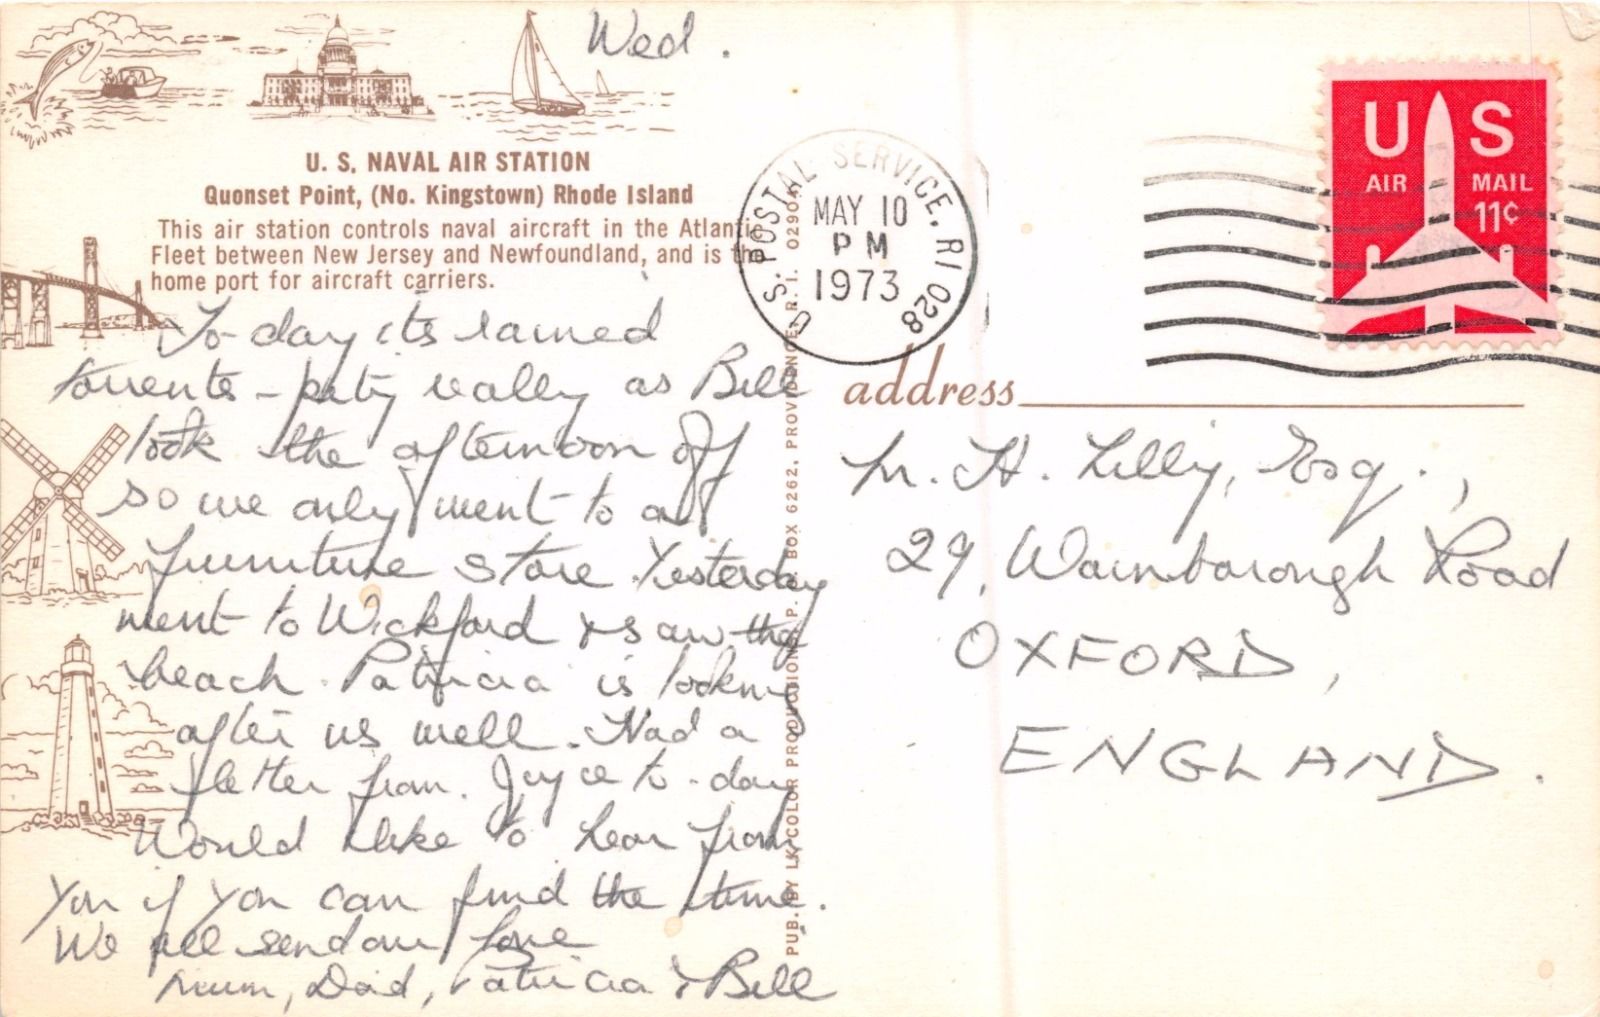 Wed.
U. S. NAVAL AIR STATION
Quonset Point, (No. Kingstown) Rhode Island
This air station controls naval aircraft in the Atlantic
Fleet between New Jersey and Newfoundland, and is the
home port for aircraft carriers.
To-day its rained
torrents - pity really as Bill
took the afternoon off
so we only went to a
furniture store. Yesterday
went to Wickford & saw the
beach. Patricia is looking
after us well. Had a
letter from Joyce to-day
Would like to hear from
you if you can find the time.
We all send our love
Mum, Dad, Patricia & Bill
PUB. BY LK COLOR PRODUCTIONS, P. O. BOX 6262, PROVIDENCE, R. I. 02904
U.S. POSTAL SERVICE, RI 028
MAY 10
PM
1973
US
AIR MAIL
11¢
address
Mr. H. Lilly, Esq.,
29, Warnborough Road
OXFORD,
ENGLAND.